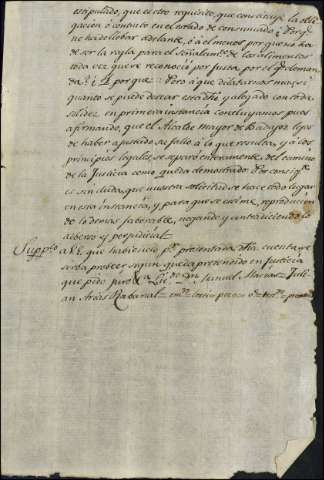 estipulado, que es otro requisito, que constituye la obli-
gacion ó contrato en el estado de consumado; Porq.e
ne ha de llebar adelante, ó á el menos porque no ha
de ser la regla para el señalam.to de los alimentos
toda vez que se reconoció por justa, por el q.e demanda
da? i P. porque? Pero á que dilatarnos mas, si
quanto se puede desear está dho y alegado con toda
solidez en primera instancia concluyamos pues
afirmando, que el Alcalde mayor de Badajoz lejos
de haber ajustado su fallo á lo que resulta, y á los
principios legales, se separó enteramente del camino
de la Justicia como queda demostrado. Por consig.te
es sin duda, que nuestra solicitud se hace todo lugar
en esta instancia, y para que se estime, reproducien
do lo demas faborable, negando y contradiciendo lo
adberso y perjudicial
Supp.co a V.E. que habiendo p.r presentada dha cuenta se
serba probeer segun queda pretendido en Justicia
que pido juro & a Lic.do D.n Manuel Marias Juli-
an Arias Rabanal